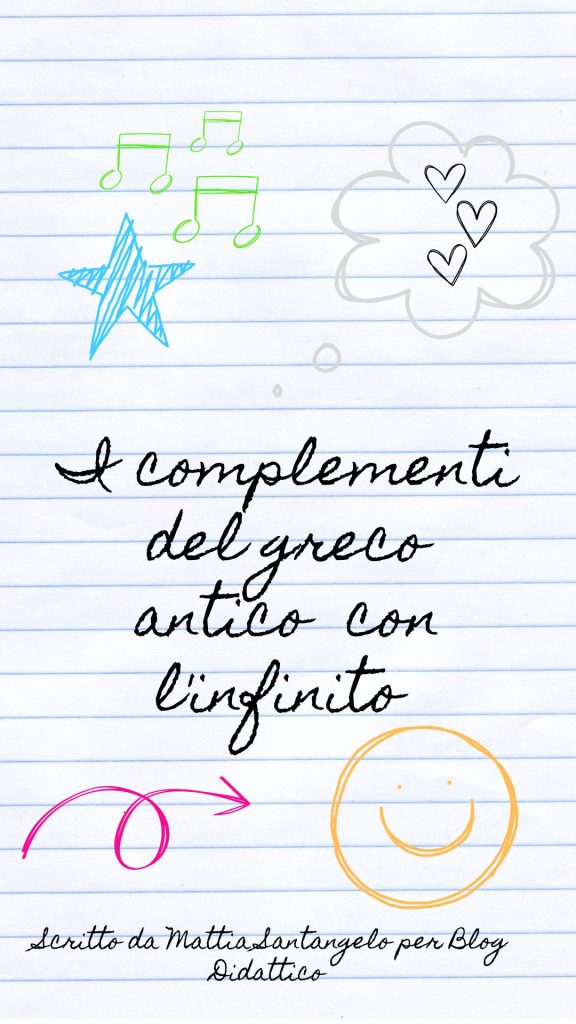 I complementi
del greco
antico con
l'infinito
Scritto da Mattia Santangelo per Blog
Didattico